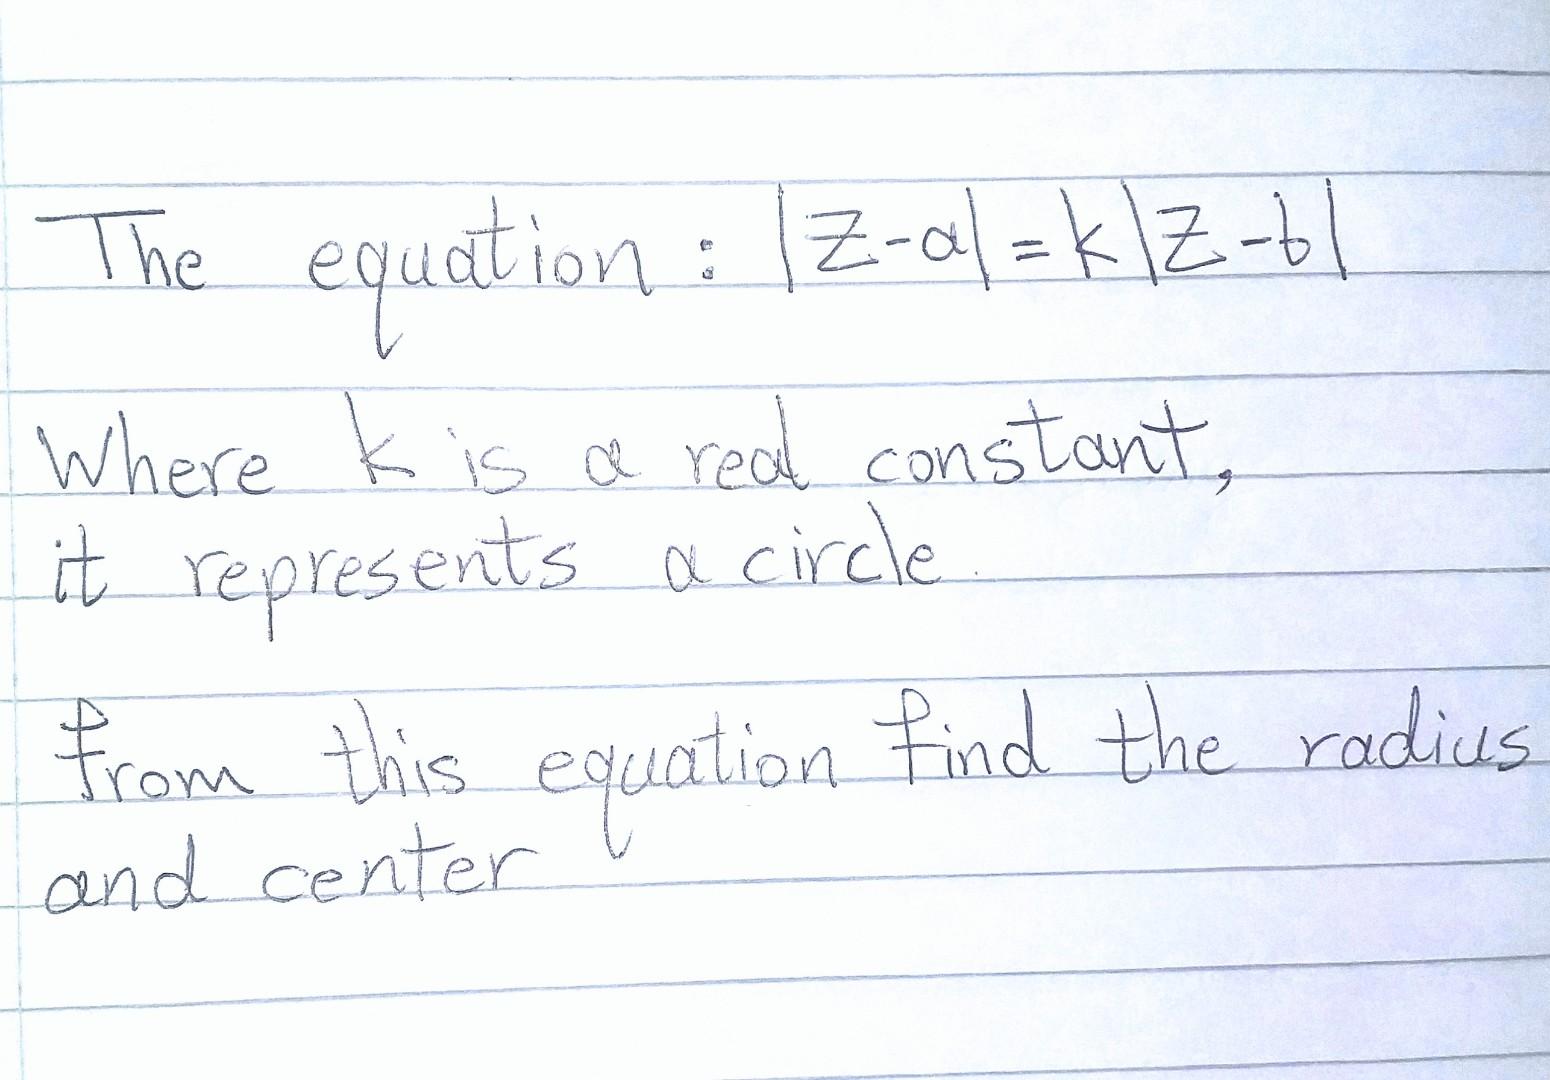 The equation : |z-a| = k|z-b|
Where k is a real constant,
it represents a circle.
from this equation find the radius
and center